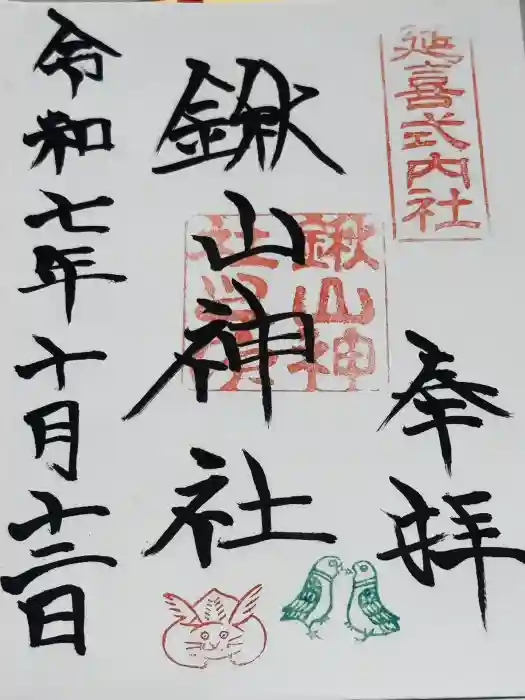 延喜式内社
奉拝
鍬山神社
鍬山神
社
令和七年十月十三日